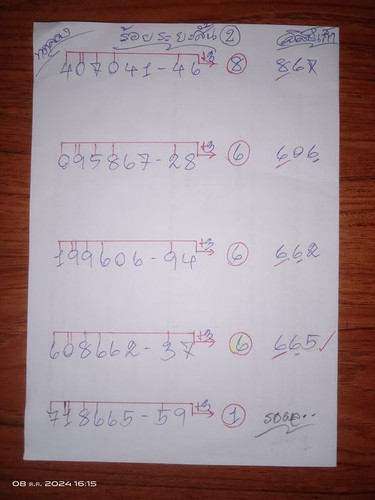 ร้อยระยะสั้น ②
407041-46 +3 ⑧ 867
095867-28 +3 ⑥ 606
199606-94 +3 ⑥ 662
608662-37 +3 ⑥ 665 ✓
718665-59 +3 ① รอผล..
08 ต.ค. 2024 16:15